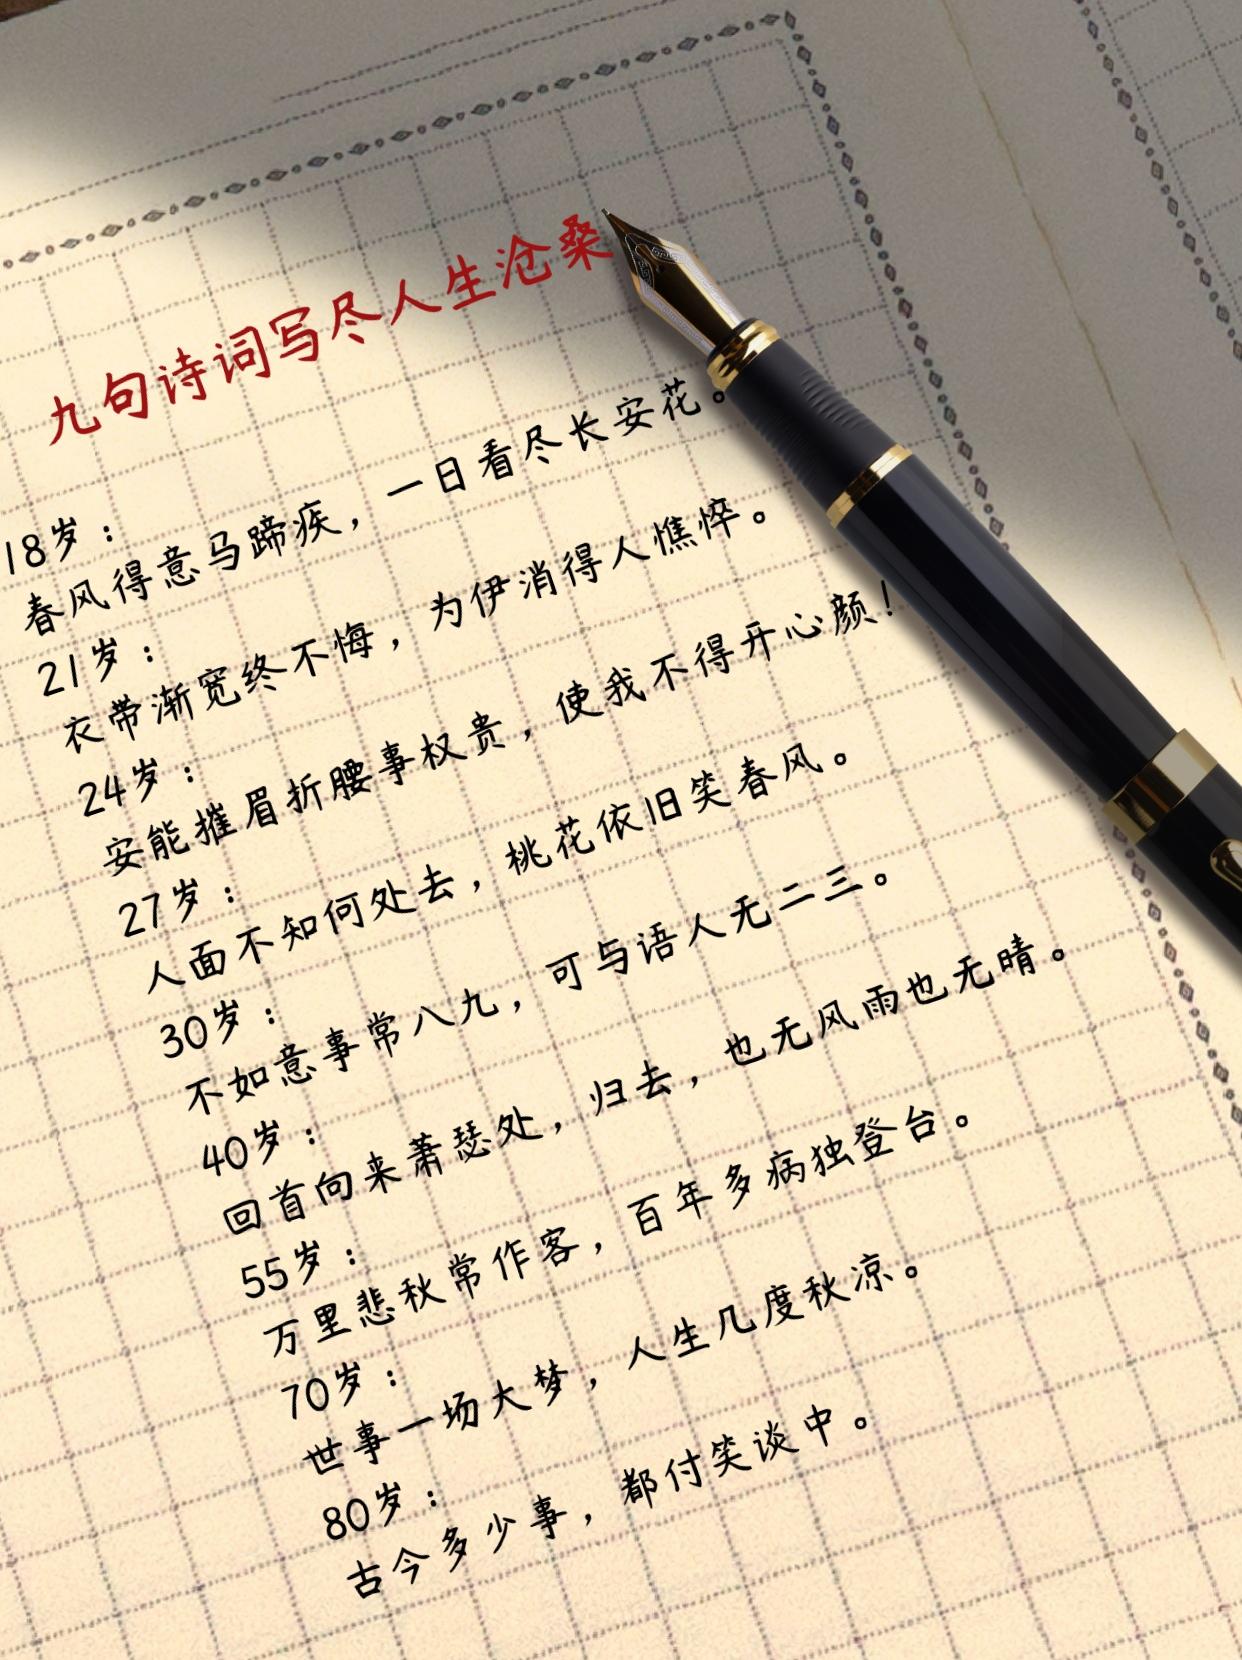 九句诗词写尽人生沧桑
18岁：
春风得意马蹄疾，一日看尽长安花。
21岁：
衣带渐宽终不悔，为伊消得人憔悴。
24岁：
安能摧眉折腰事权贵，使我不得开心颜！
27岁：
人面不知何处去，桃花依旧笑春风。
30岁：
不如意事常八九，可与语人无二三。
40岁：
回首向来萧瑟处，归去，也无风雨也无晴。
55岁：
万里悲秋常作客，百年多病独登台。
70岁：
世事一场大梦，人生几度秋凉。
80岁：
古今多少事，都付笑谈中。